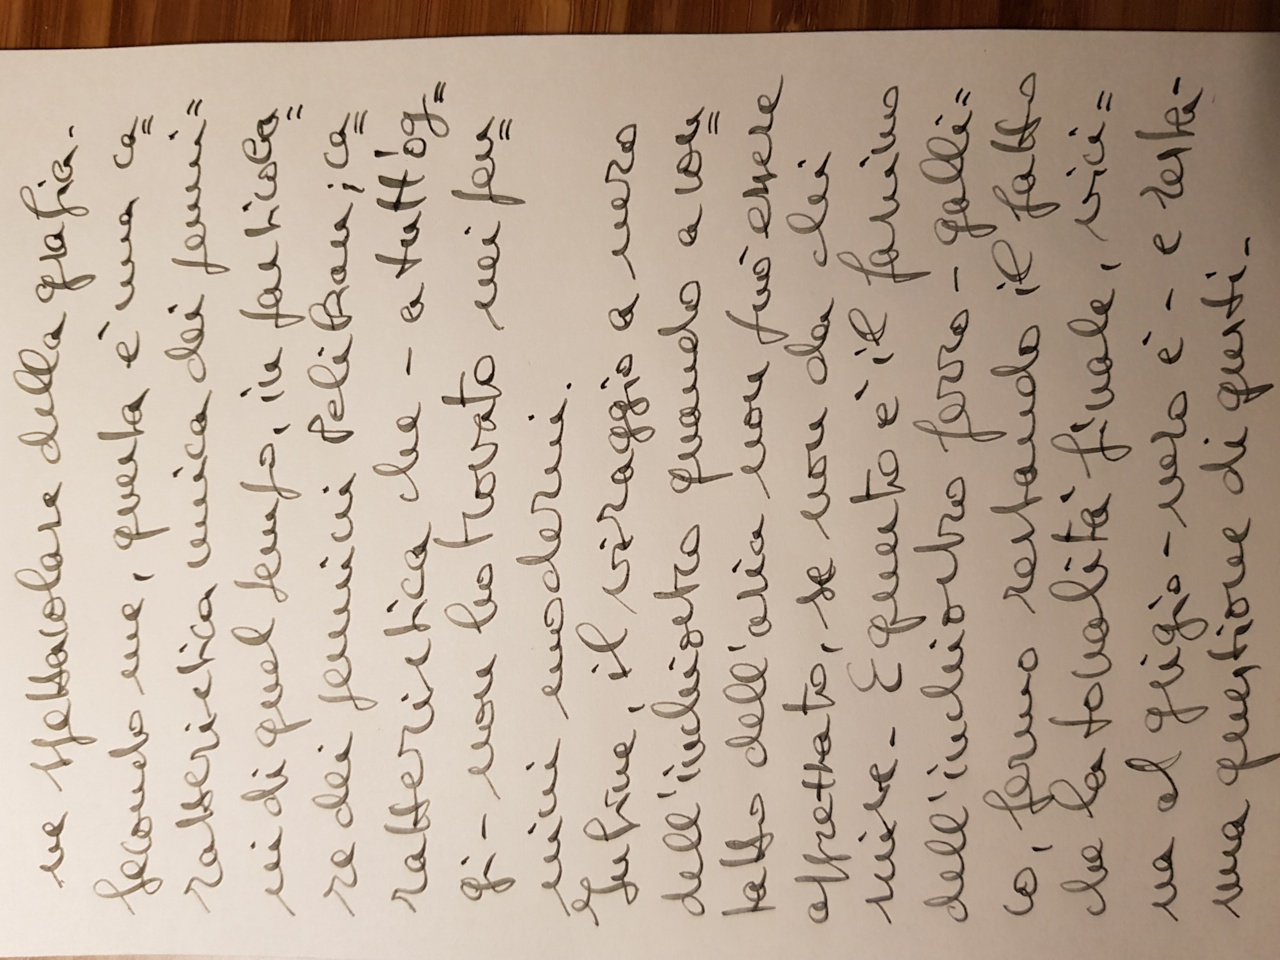 ne spettacolare della grafia.
Secondo me, questa è una ca=
ratteristica unica dei penni=
ni di quel tempo, in particola=
re dei pennini Pelikan; ca=
ratteristica che - a tutt'og=
gi - non ho trovato nei pen=
nini moderni.
Infine, il viraggio a nero
dell'inchiostro quando a con=
tatto dell'aria non può essere
apprezzato, se non da chi
E questo è il fascino
dell'inchiostro ferro - galli=
co, fermo restando il fatto
che la tonalità finale, vici=
na al grigio - nero è - e resta -
una questione di gusti -